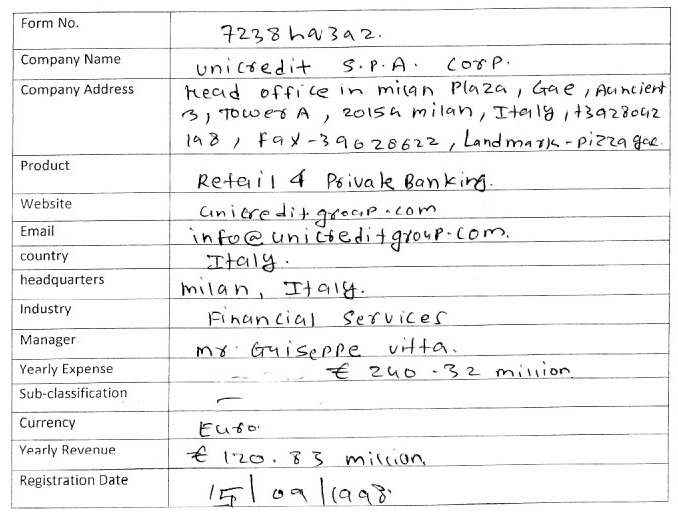 Form No. 7238ha3a2.
Company Name unicredit S.P.A. Corp.
Company Address Head office in milan Plaza, Gae, Auncient
3, Tower A, 20154 milan, Italy, +3928092
198, Fax-39028622, Landmark-pizza gae.
Product Retail & Private Banking.
Website unicreditgroup.com
Email info@unicreditgroup.com.
country Italy.
headquarters milan, Italy.
Industry Financial Services
Manager mr. Guiseppe vitta.
Yearly Expense € 240.32 million
Sub-classification –
Currency Euro.
Yearly Revenue € 120.83 million,
Registration Date 15/09/1998.